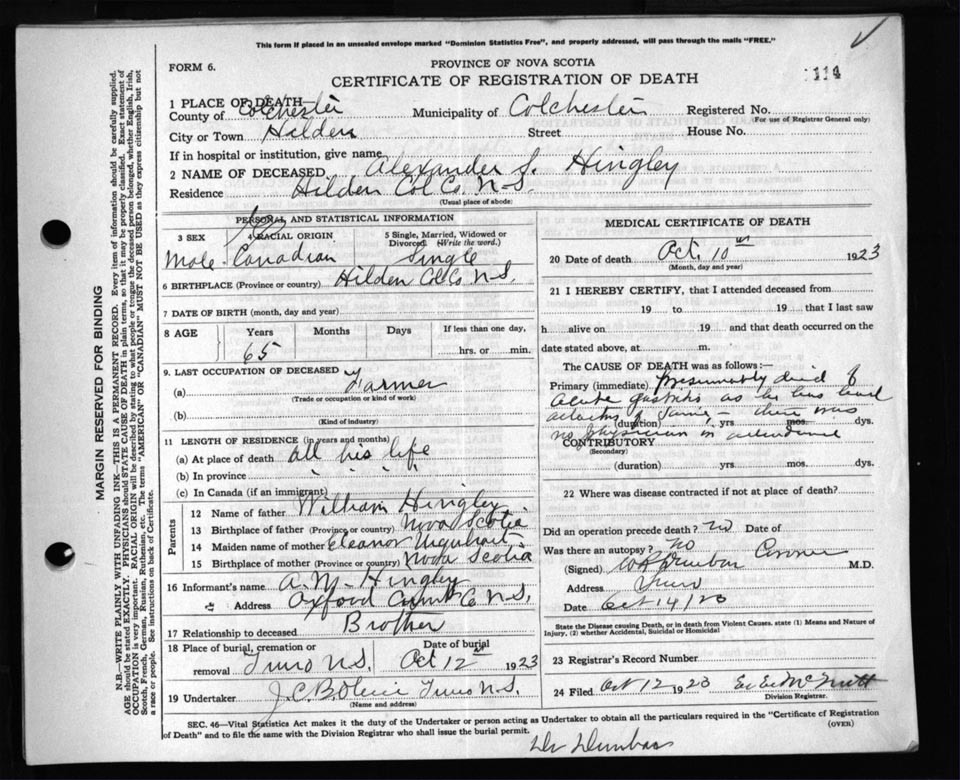 This form if placed in an unsealed envelope marked "Dominion Statistics Free", and properly addressed, will pass through the mails "FREE."
FORM 6.
PROVINCE OF NOVA SCOTIA
CERTIFICATE OF REGISTRATION OF DEATH
1 PLACE OF DEATH—
County of Colchester Municipality of Colchester Registered No.
(For use of Registrar General only)
City or Town Hilden Street House No.
If in hospital or institution, give name
2 NAME OF DECEASED Alexander S. Hingley
Residence Hilden Col. Co. N.S.
(Usual place of abode)
PERSONAL AND STATISTICAL INFORMATION
3 SEX 4 RACIAL ORIGIN 5 Single, Married, Widowed or Divorced. (Write the word.)
Male Canadian Single
6 BIRTHPLACE (Province or country) Hilden Col. Co N.S.
7 DATE OF BIRTH (month, day and year)
8 AGE Years Months Days If less than one day,
65 hrs. or min.
9. LAST OCCUPATION OF DECEASED
(a) Farmer
(Trade or occupation or kind of work)
(b)
(Kind of industry)
11 LENGTH OF RESIDENCE (in years and months)
(a) At place of death all his life
(b) In province " " "
(c) In Canada (if an immigrant)
Parents
12 Name of father William Hingley
13 Birthplace of father (Province or country) Nova Scotia
14 Maiden name of mother Eleanor Urquhart
15 Birthplace of mother (Province or country) Nova Scotia
16 Informant's name A. M. Hingley
Address Oxford Cum Co N.S.
17 Relationship to deceased Brother
18 Place of burial, cremation or removal Truro N.S. Date of burial Oct 12th 1923
19 Undertaker J.C.B. Truro N.S.
(Name and address)
MEDICAL CERTIFICATE OF DEATH
20 Date of death Oct. 10th 1923
(Month, day and year)
21 I HEREBY CERTIFY, that I attended deceased from
19 to 19 that I last saw
h alive on 19 and that death occurred on the
date stated above, at m.
The CAUSE OF DEATH was as follows:—
Primary (immediate) Presumably died of
acute gastritis as he has had
attacks of same — there was
(duration) yrs mos. dys.
no physician in attendance
CONTRIBUTORY
(Secondary)
(duration) yrs mos. dys.
22 Where was disease contracted if not at place of death?
Did an operation precede death? no Date of
Was there an autopsy? no
(Signed) Dunbar Coroner M.D.
Address Truro
Date Oct 14/23
State the Disease causing Death, or in death from Violent Causes, state (1) Means and Nature of Injury, (2) whether Accidental, Suicidal or Homicidal
23 Registrar's Record Number
24 Filed Oct 12 1923 McNutt
Division Registrar.
SEC. 46—Vital Statistics Act makes it the duty of the Undertaker or person acting as Undertaker to obtain all the particulars required in the "Certificate of Registration
of Death" and to file the same with the Division Registrar who shall issue the burial permit.
(OVER)
Dr Dunbar
MARGIN RESERVED FOR BINDING
N.B.—WRITE PLAINLY WITH UNFADING INK—THIS IS A PERMANENT RECORD. Every item of information should be carefully supplied.
AGE should be stated EXACTLY. PHYSICIANS should STATE CAUSE OF DEATH in plain terms, so that it may be properly classified. Exact statement of
OCCUPATION is very important. RACIAL ORIGIN will be described by stating to what people or tongue the deceased person belonged, whether English, Irish,
Scotch, French, German, Russian, Ruthenian, etc. The terms "AMERICAN" OR "CANADIAN" MUST NOT BE USED as they express citizenship but not
a race or people. See instructions on back of Certificate.